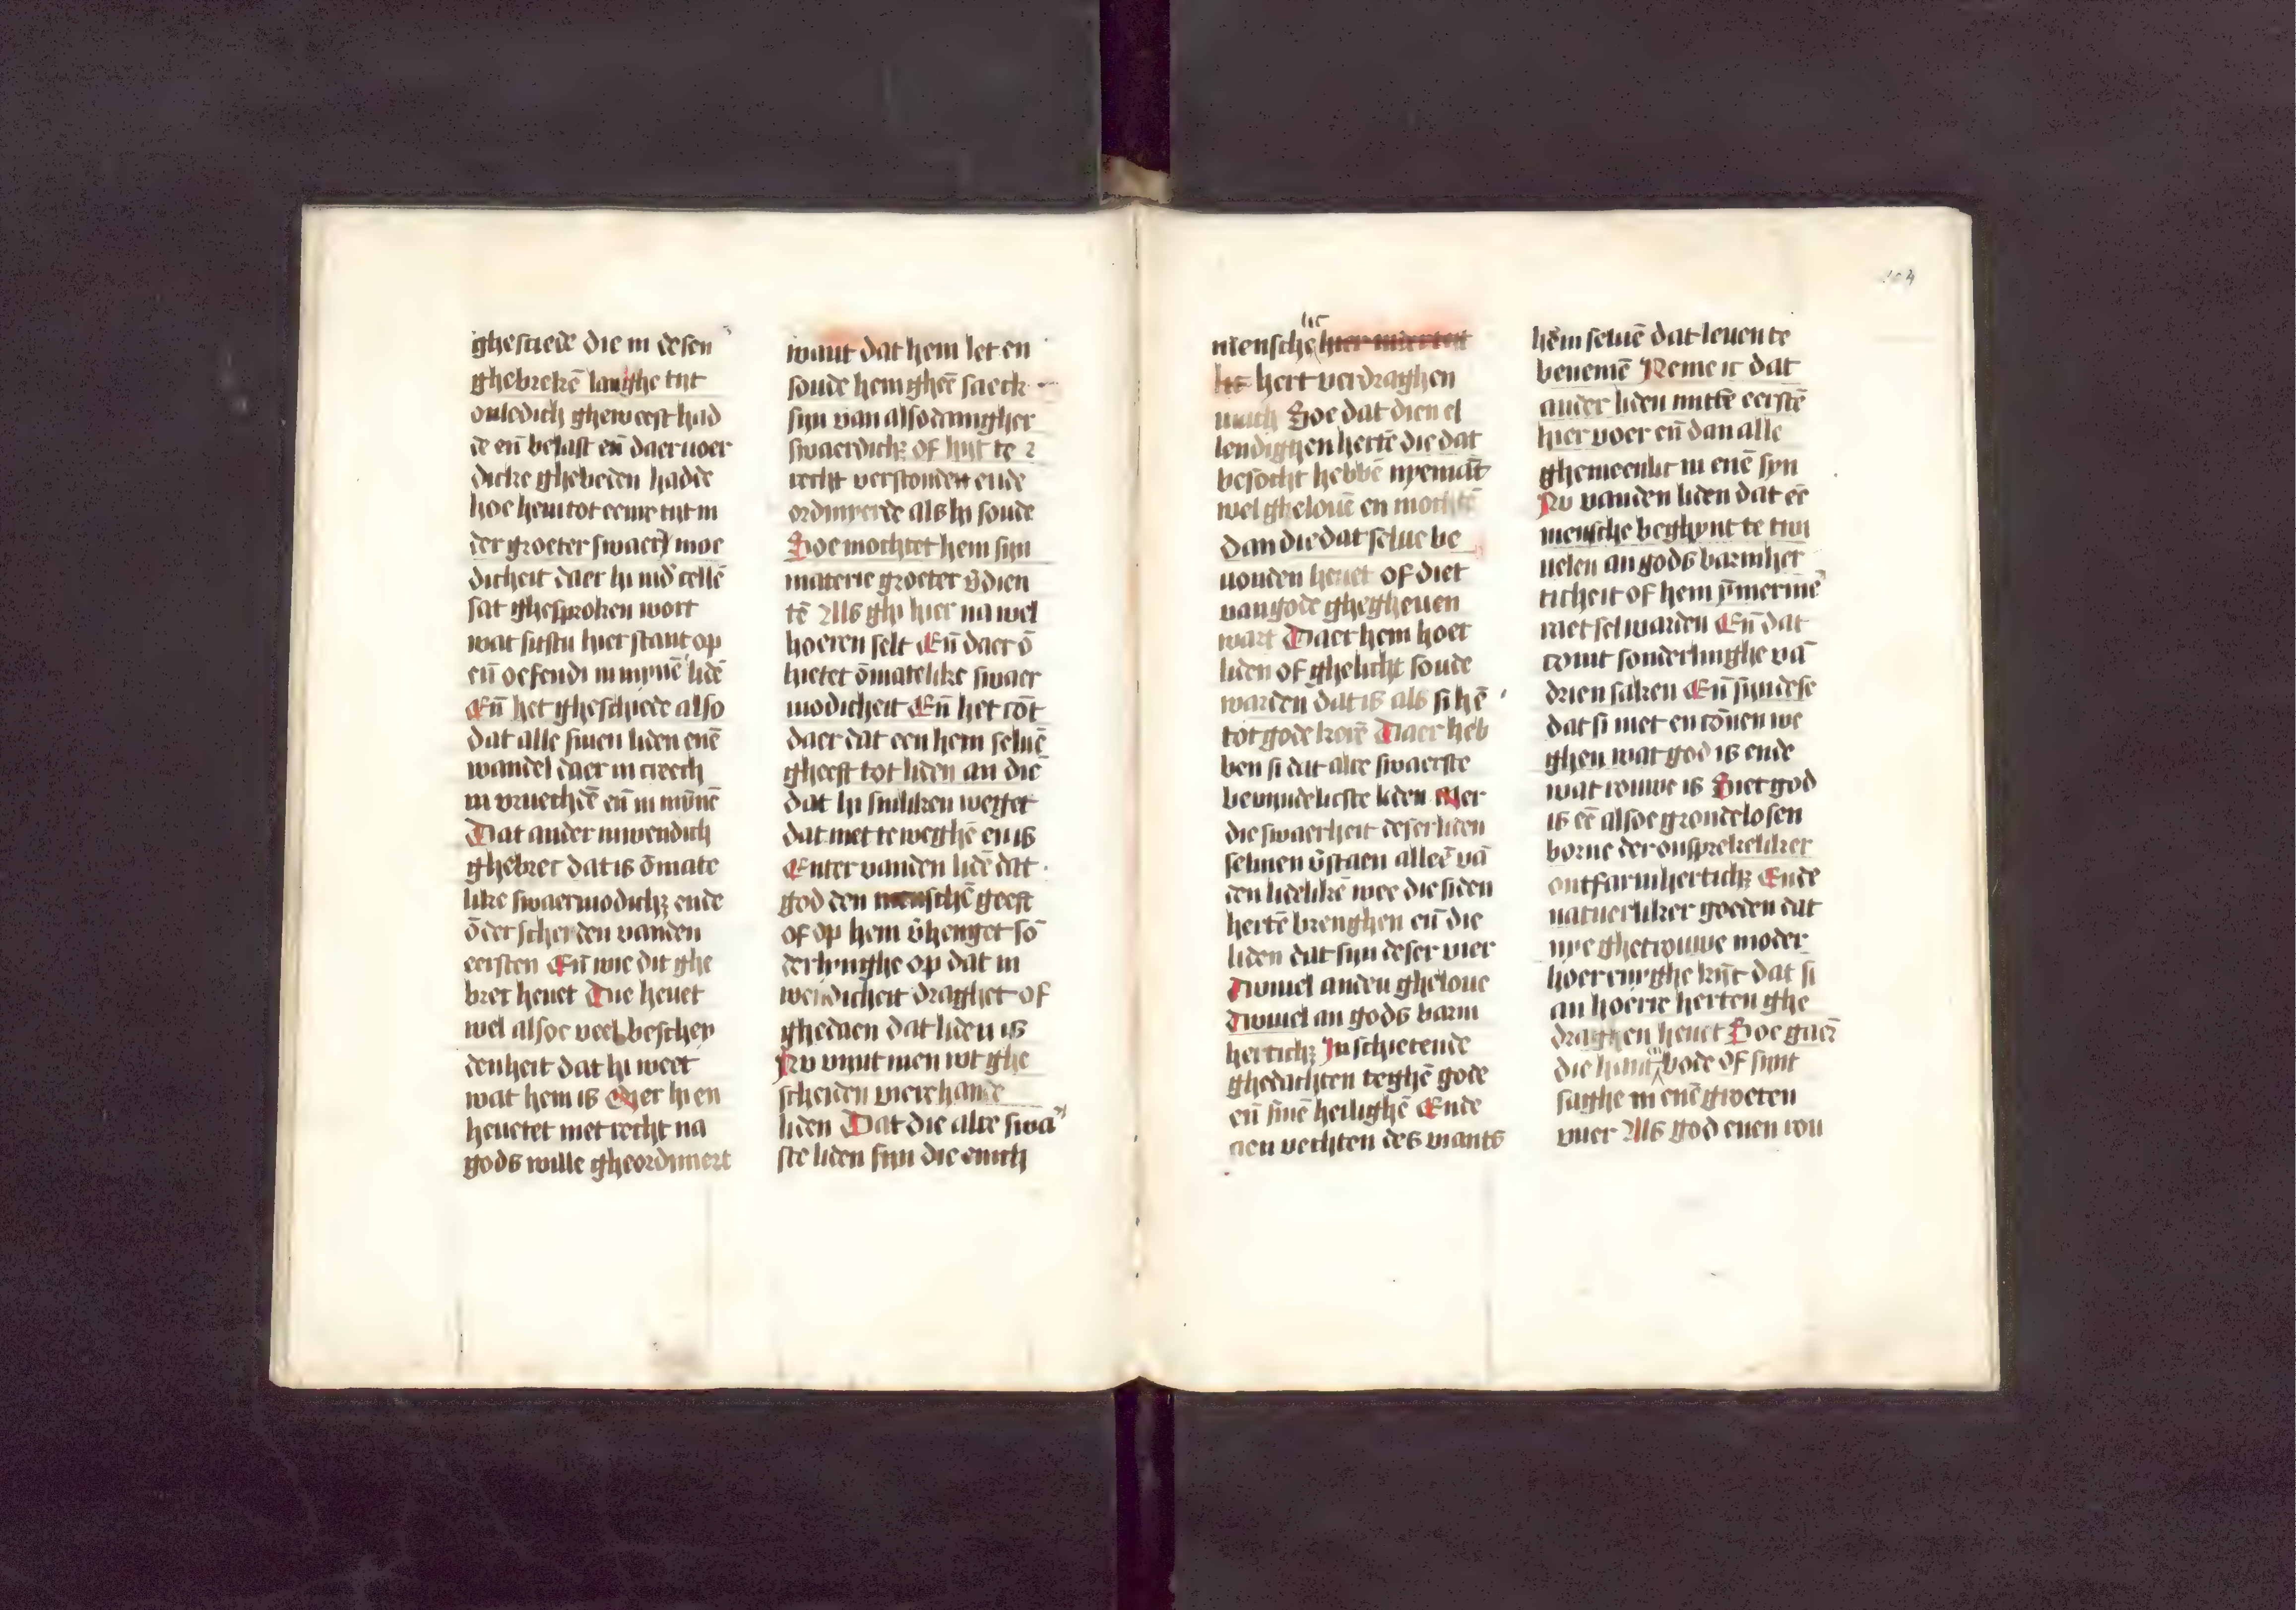 ghesciede die in desen
ghebrekē langhe tijt
onledich gheweest had
de eñ belast eñ daer voer
dicke ghebeden hadde
hoe hem tot eenre tijt in
der groeter swaer moe
dicheit daer hi in diē cellē
sat ghesproken wort
wat sitstu hier stant op
eñ oefendi in mijnē lidē
Eñ het ghesciede also
dat alle sinen liden enē
wandel daer in creech
in vruechdē eñ in mijnē
Dat ander inwendich
ghebrec dat is ōmate
like swaermodichz ende
ōderscheyden vanden
eersten Eñ wie dit ghe
brec heuet Die heuet
wel alsoe veel beschey
denheit dat hi weet
wat hem is Mer hi en
heuetet met recht na
gods wille gheordiniert
want dat hem let en
soude hem gheē saeck
sijn van alsodanigher
swaerdichz of hijt te
recht verstonden ende
ordinyerde als hi soude
Hoe mochtet hem sijn
materie groeter v̄dien
tē Als ghi hier na wel
hoeren selt Eñ daer ō
hietet ōmatelike swaer
modicheit Eñ het cōt
daer dat een hem seluē
gheeft tot liden an diē
dat hi sulliken werfet
dat met te weghē en is
Enter vanden lidē dat
god den menschē geeft
of op hem v̄henget sō
derlinghe op dat in
wendicheit draghet of
ghedaen dat liden is
Nu vint men wt ghe
scheiden vierehande
liden Dat die alre swa
ste liden sijn die enich
mensche lic
lic hert verdraghen
mach Hoe dat dien el
lendighen hertē die dat
besocht hebbē nyemāt
wel ghelouē en mochtē
dan die dat selue be
uonden heuet of diet
van gode ghegheuen
wart Daer hem hoer
liden of ghelicht soude
warden dat is als si hē
tot gode kerē Daer heb
ben si dat alre swaerste
bevindelicste liden Mer
die swaerheit deser liden
selmen v̄staen alleē vā
den lidelikē wee die si den
hertē brenghen eñ die
liden dat sijn deser vier
Twiuel anden gheloue
Twiuel an gods barm
hertichz Inschietende
ghedachten teghē gode
eñ sinē heilighē Ende
aen vechten des viants
hem seluē dat leuen te
benemē Neme ic dat
ander liden mittē eerstē
hier voer eñ dan alle
ghemeenlic in enē syn
Nu vanden liden dat eē
mensche beghynt te twi
uelen an gods barmher
ticheit of hem ȳmermē
raet sel warden Eñ dat
comt sonderlinghe vā
drien saken Eñ sijn dese
dat si niet en cōnen we
ghen wat god is ende
wat rouwe is Siet god
is eē alsoe grondelosen
borne der onsprekeliker
ontfarmhertichz Ende
natuerliker goeden dat
nye ghetrouwe moder
hoer eurghe kijnt dat si
an hoerre herten ghe
draghen heuet Hoe gaer
die hant bode of sijnt
saghe in enē groeten
vuer Als god euen rou